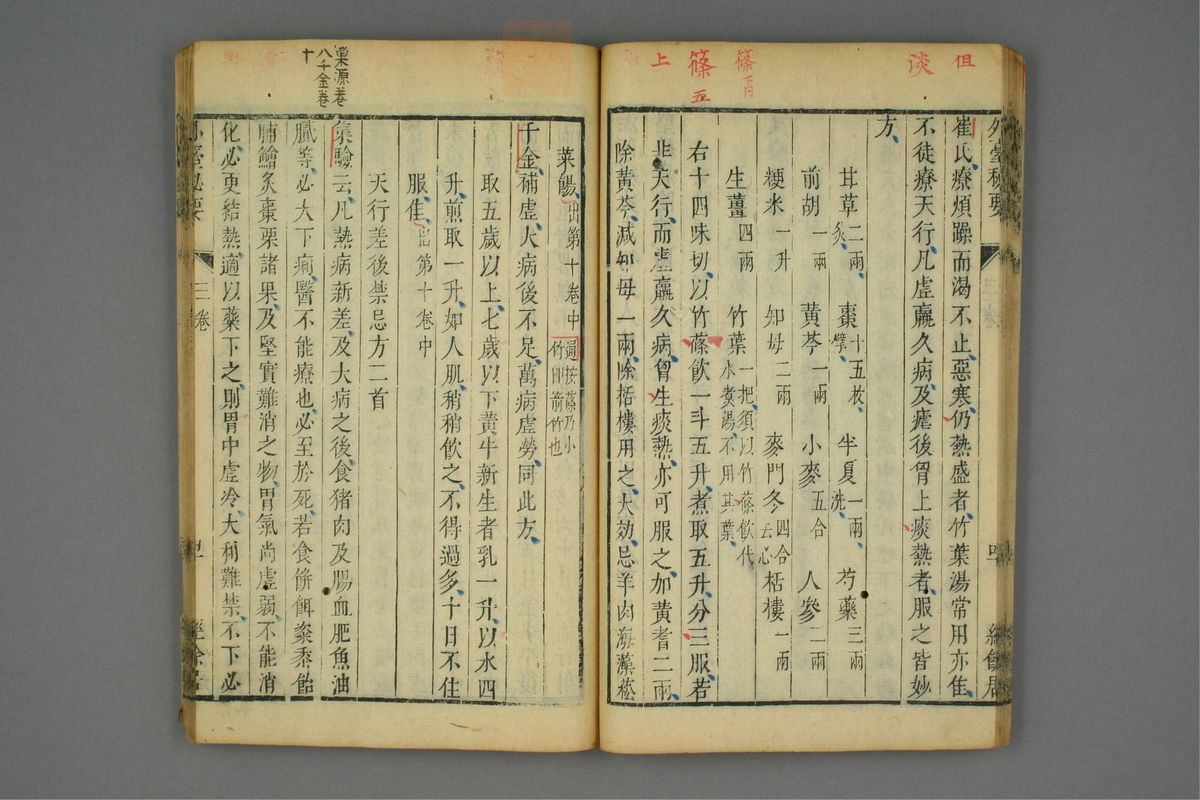 但
淡
篠下同
篠五
上
外臺秘要
崔氏療煩躁而渴不止惡寒仍熱盛者竹葉湯常用亦佳
不徒療天行凡虛羸久病及瘧後胷上痰熱者服之皆妙
方
甘草二兩炙 棗十五枚擘 半夏一兩洗 芍藥三兩
前胡一兩 黃芩一兩 小麥五合 人參二兩
粳米一升 知母二兩 麥門冬四合去心 栝樓一兩
生薑四兩 竹葉一把須以竹篠飲代水煮湯不用其葉
右十四味切以竹篠飲一斗五升煮取五升分三服若
非天行而虛羸久病胷生痰熱亦可服之加黃耆二兩
除黃芩減知母一兩除栝樓用之大効忌羊肉海藻菘
菜餳出第十卷中
通按篠乃小竹即箭竹也
千金補虛大病後不足萬病虛勞同此方
取五歲以上七歲以下黃牛新生者乳一升以水四
升煎取一升如人肌稍稍飲之不得過多十日不住
服佳出第十卷中
天行差後禁忌方二首
集驗云凡熱病新差及大病之後食猪肉及腸血肥魚油
膩等必大下痢醫不能療也必至於死若食餅餌粢黍飴
脯鱠炙棗栗諸果及堅實難消之物胃氣尚虛弱不能消
化必更結熱適以藥下之則胃中虛冷大利難禁不下必
巢源卷
八千金卷
十
外臺必要
三卷